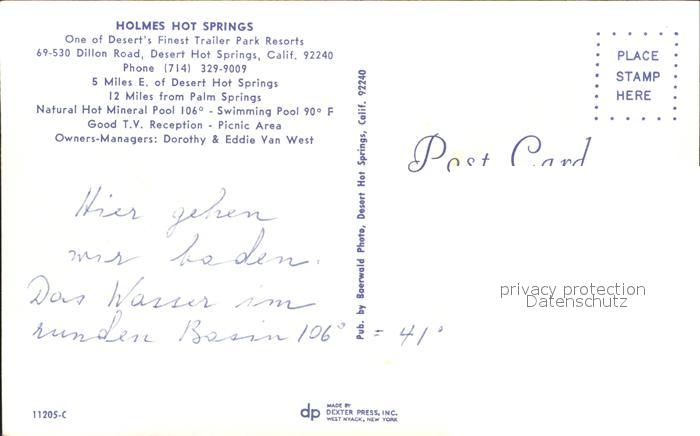 HOLMES HOT SPRINGS
One of Desert's Finest Trailer Park Resorts
69-530 Dillon Road, Desert Hot Springs, Calif. 92240
Phone (714) 329-9009
5 Miles E. of Desert Hot Springs
12 Miles from Palm Springs
Natural Hot Mineral Pool 106° - Swimming Pool 90° F
Good T.V. Reception - Picnic Area
Owners-Managers: Dorothy & Eddie Van West
Hier gehen
wir baden.
Das Wasser im
runden Basin 106° = 41°
11205-C
Pub. by Baerwald Photo, Desert Hot Springs, Calif. 92240
dp
MADE BY
DEXTER PRESS, INC.
WEST NYACK, NEW YORK
PLACE
STAMP
HERE
Post Card
privacy protection
Datenschutz